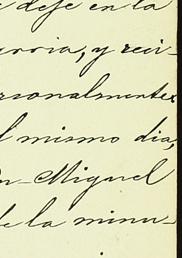 deje en la
y reci-
rsonalmente
l mismo dia,
n Miguel
de la minu-